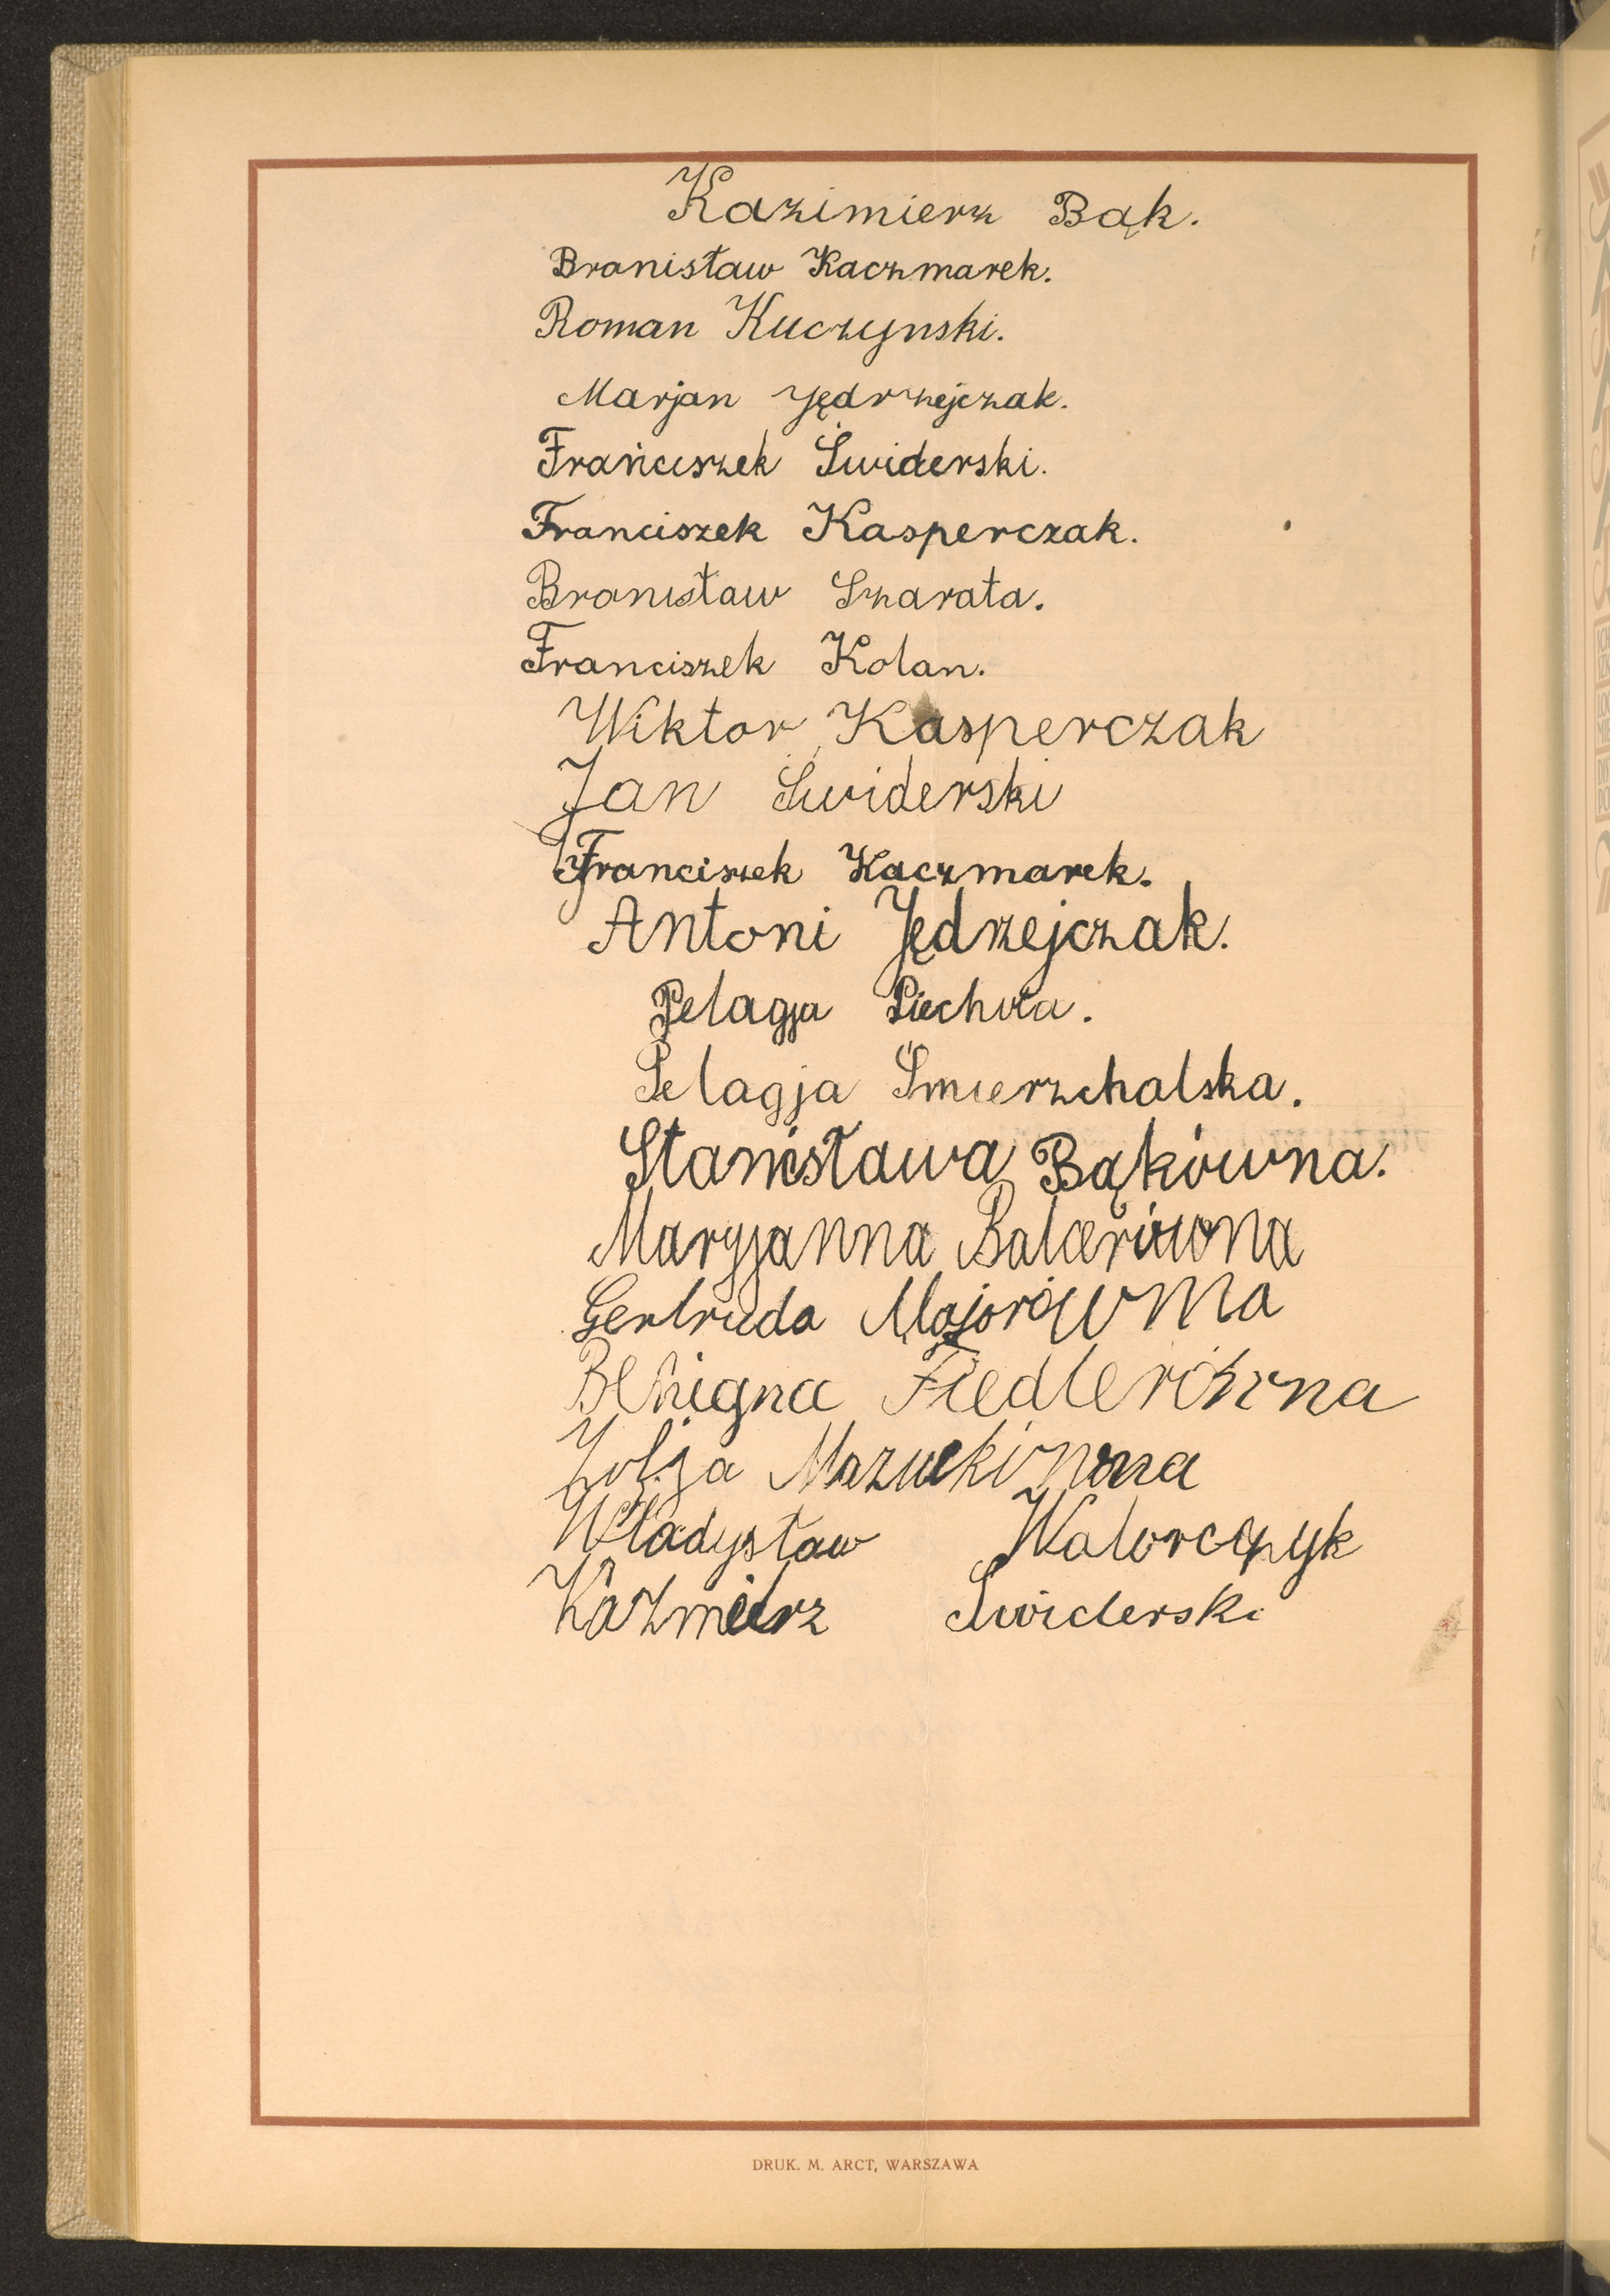 Kazimierz Bąk.
Bronisław Kaczmarek.
Roman Kuczynski.
Marjan Jędrzejczak.
Franciszek Świderski.
Franciszek Kasperczak.
Bronisław Szarata.
Franciszek Kolan.
Wiktor Kasperczak
Jan Świderski
Franciszek Kaczmarek.
Antoni Jędrzejczak.
Pelagja Piechota.
Pelagja Śmierzchalska.
Stanisława Bąkówna.
Maryjanna Balcerówna
Gertruda Majorówna
Benigna Fiedlerówna
Zofja
Władysław Walorczyk
Kazmierz Swiderski
DRUK. M. ARCT, WARSZAWA